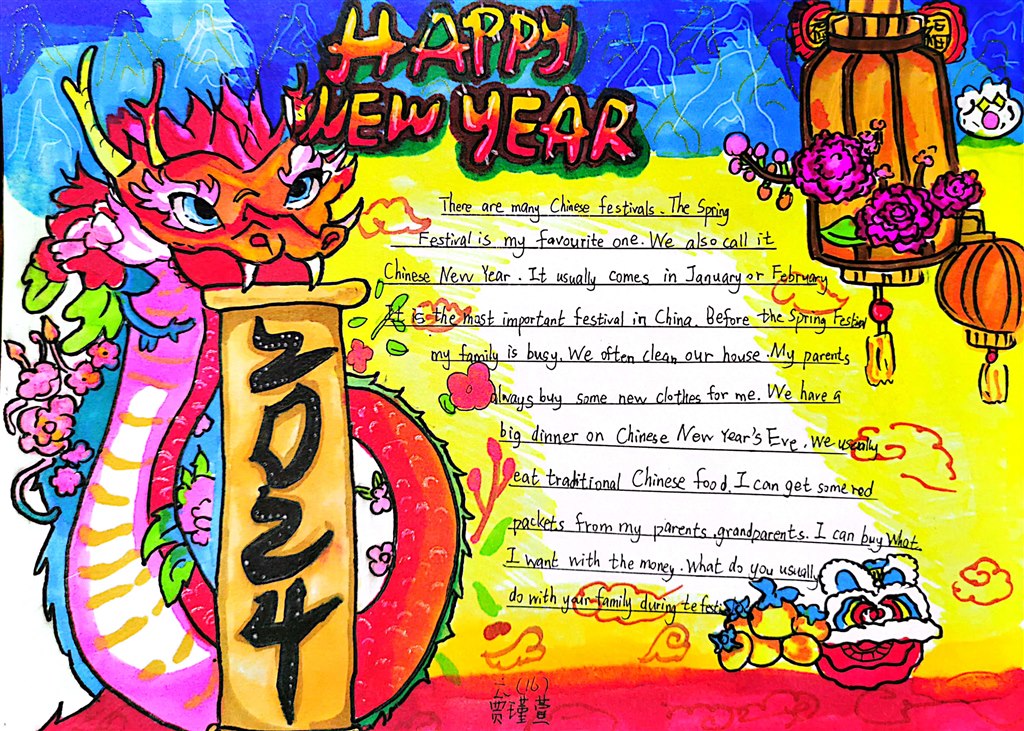 HAPPY
NEW YEAR
There are many Chinese festivals. The Spring
Festival is my favourite one. We also call it
Chinese New Year. It usually comes in January or February
It is the most important festival in China. Before the Spring Festival
my family is busy. We often clean our house. My parents
always buy some new clothes for me. We have a
big dinner on Chinese New Year's Eve. We usually
eat traditional Chinese food. I can get some red
packets from my parents, grandparents. I can buy what
I want with the money. What do you usually
do with your family during te
2024
六(16)
贾瑾萱